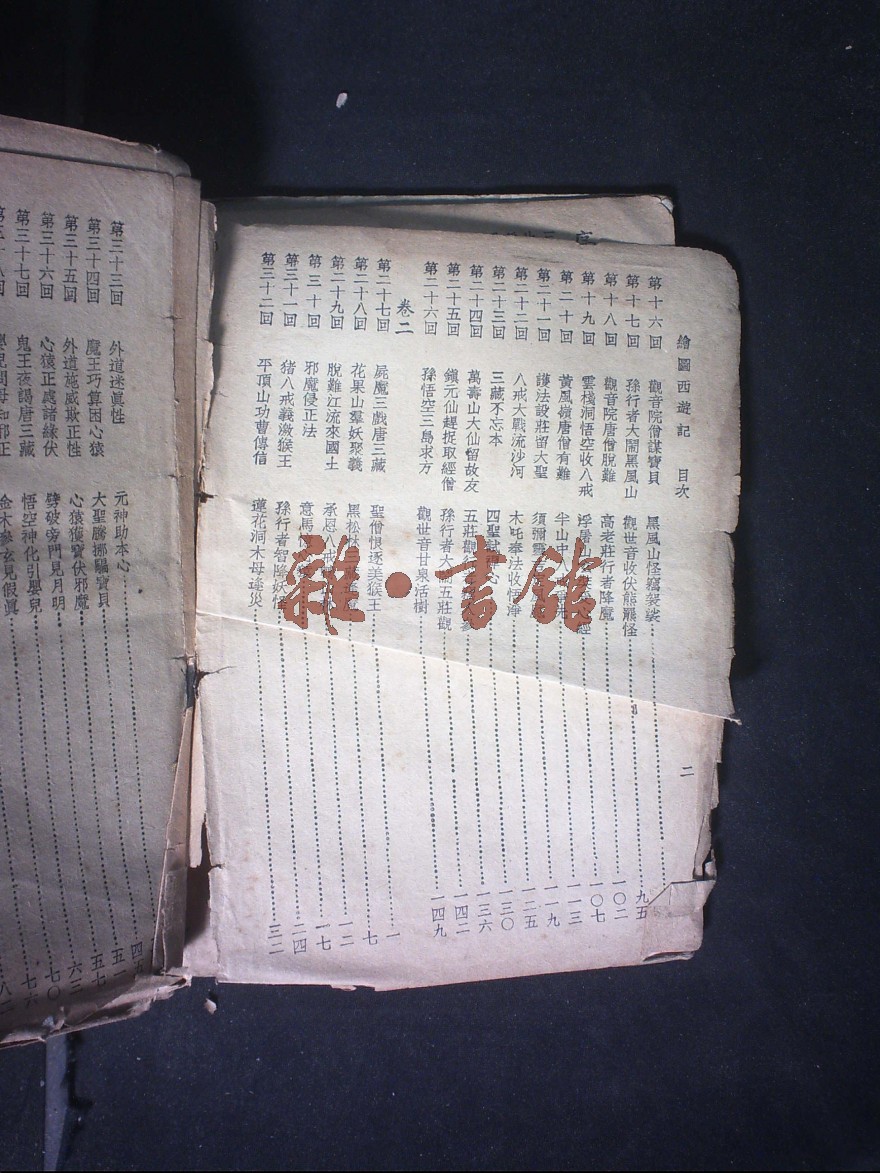 繪圖西遊記 目次 二
第十六回 觀音院僧謀寶貝 黑風山怪竊袈裟 九五
第十七回 孫行者大鬧黑風山 觀世音收伏熊羆怪 一〇二
第十八回 觀音院唐僧脫難 高老莊行者降魔 一〇七
第十九回 雲棧洞悟空收八戒 浮屠山 經 一一三
第二十回 黃風嶺唐僧有難 半山中八 一一九
第二十一回 護法設莊留大聖 須彌靈 一二五
第二十二回 八戒大戰流沙河 木吒奉法收悟淨 一三〇
第二十三回 三藏不忘本 四聖試 心 一三六
第二十四回 萬壽山大仙留故友 五莊觀 參 一四二
第二十五回 鎮元仙趕捉取經僧 孫行者大 五莊觀 一四九
第二十六回 孫悟空三島求方 觀世音甘泉活樹
卷二
第二十七回 屍魔三戲唐三藏 聖僧恨逐美猴王 一
第二十八回 花果山羣妖聚義 黑松林 七
第二十九回 脫難江流來國土 承恩八戒 一二
第三十回 邪魔侵正法 意馬 一七
第三十一回 猪八戒義激猴王 孫行者智降妖怪 二四
第三十二回 平頂山功曹傳信 蓮花洞木母逢災 三二
第三十三回 外道迷眞性 元神助本心
第三十四回 魔王巧算困心猿 大聖騰挪騙寶貝 五一
第三十五回 外道施威欺正性 心猿獲寶伏邪魔 五七
第三十六回 心猿正處諸緣伏 劈破旁門見月明 六三
第三十七回 鬼王夜謁唐三藏 悟空神化引嬰兒 七〇
嬰兒問母知邪正 金木參玄見假眞 七六
八二
雜·書館